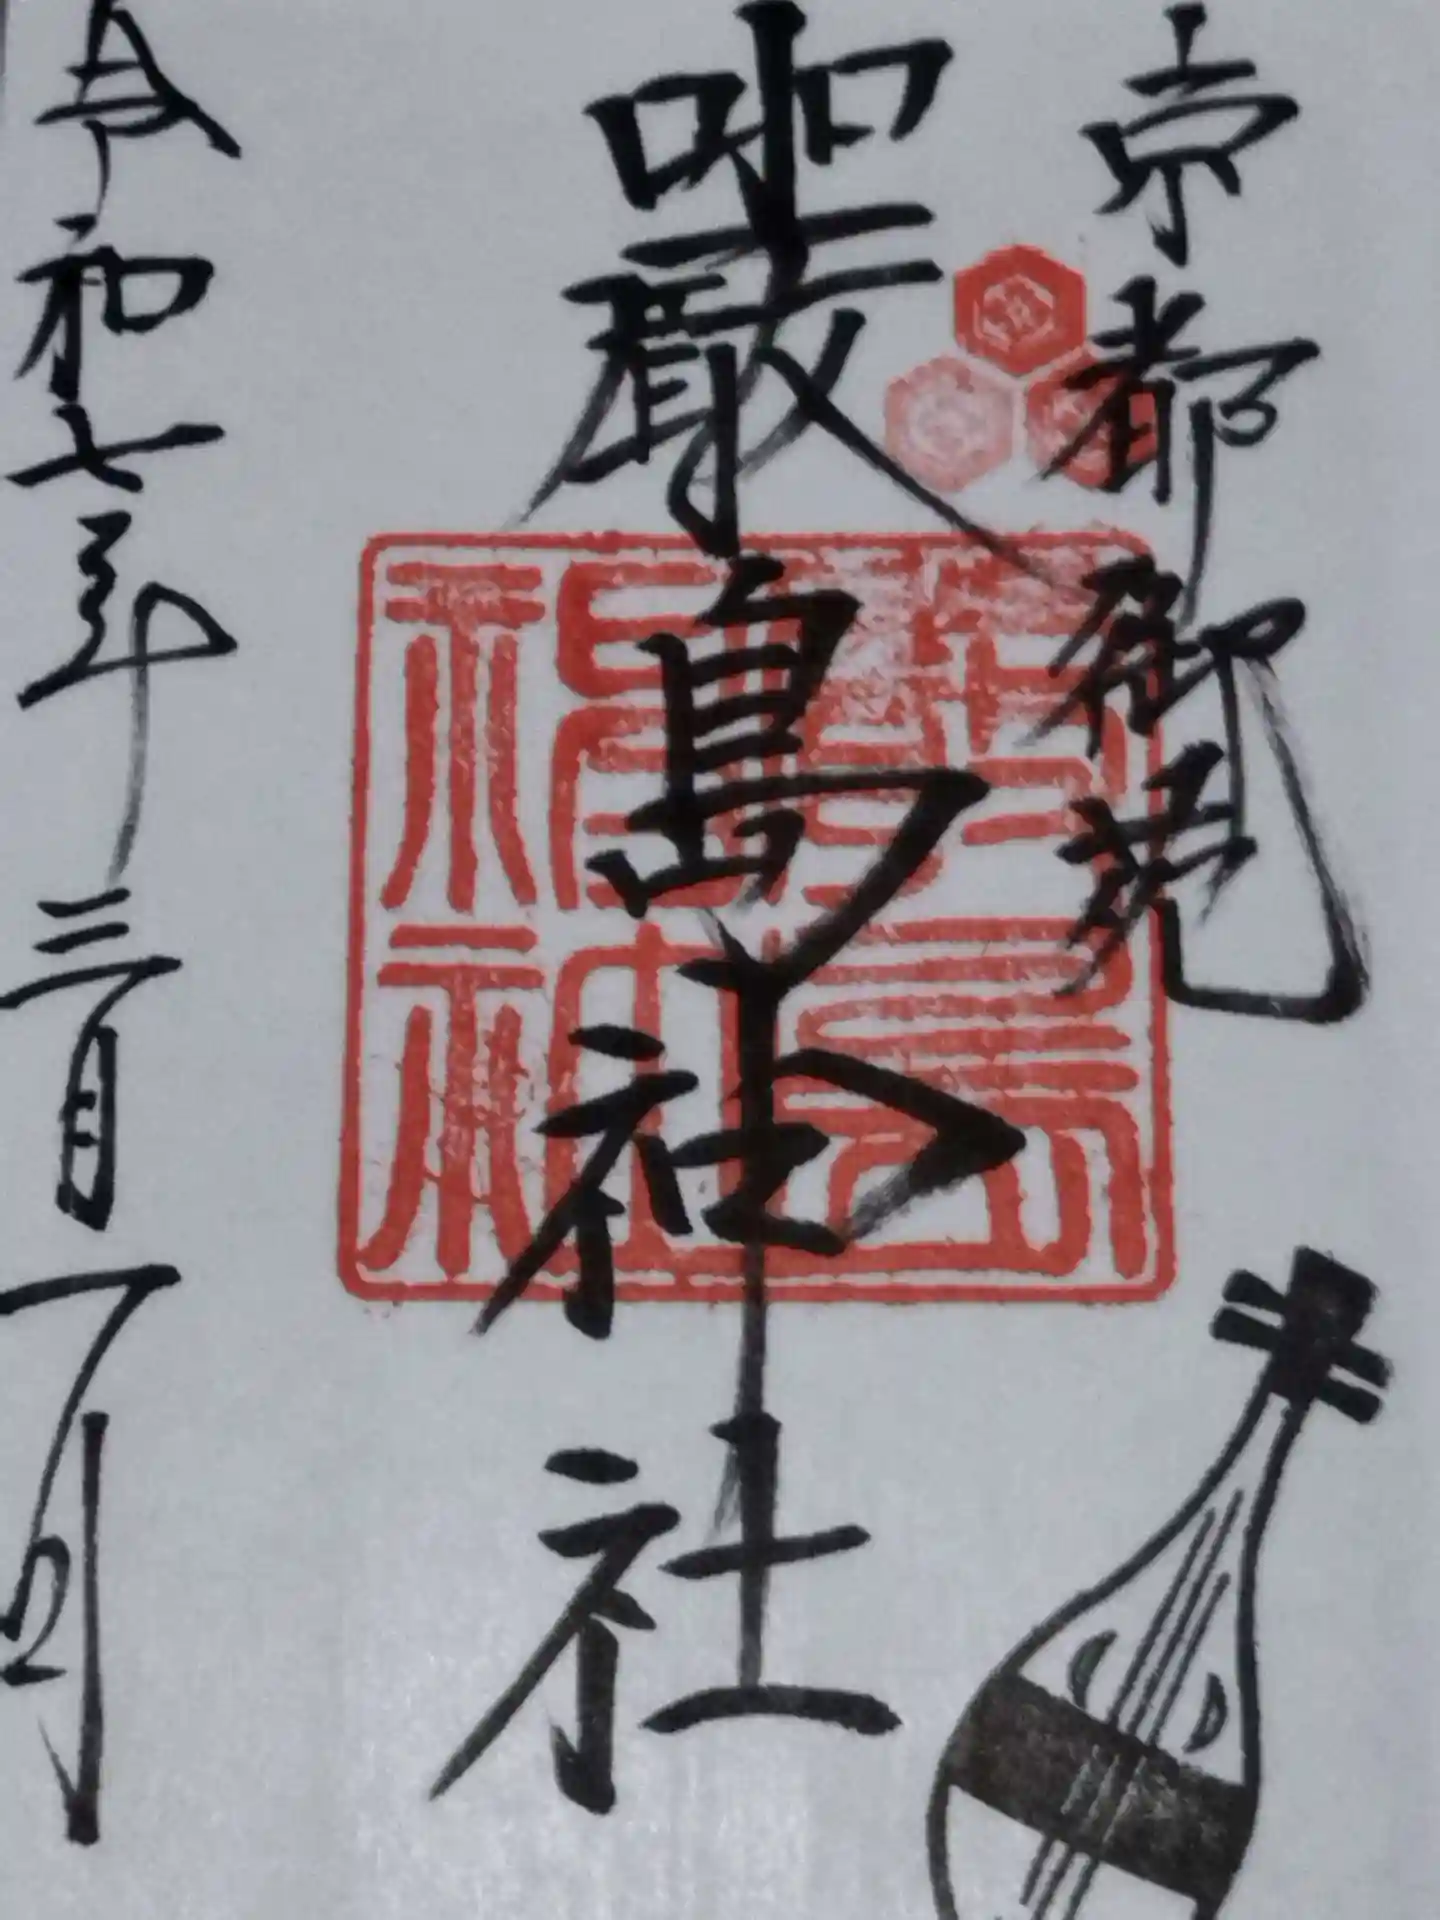 京都御苑
嚴島神社
令和七年三月一日
嚴島
神社